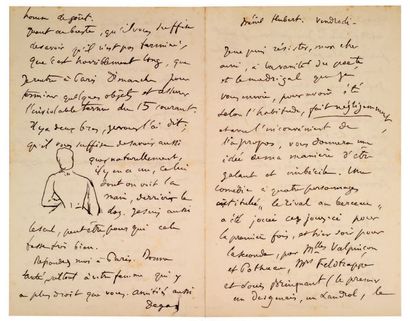 Ménil Hubert. Vendredi.
Que puis résister, mon cher
ami, à la vanité du poète
et le madrigal que je
vous envoie, pour avoir été
selon l'habitude, fait négligemment
et avec l'inconvénient de
l'à propos, vous donnera une
idée de ma manière d'être
galant et imbécile. Une
comédie à quatre personnages
intitulée, le rival au berceau,
a été jouée ces jours-ci pour
la première fois, et hier soir pour
la seconde, par Mlles Valpinçon
et Pothuau, Mrs
et Louis Brinquant (le premier
un Desgenais, un Landrol, le
homme de goût.
Quant au reste, qu'il vous suffise
de savoir qu'il n'est pas terminé,
que c'est horriblement long, que
je rentre à Paris Dimanche pour
terminer quelques objets et assurer
l'inviolable terme du 15 courant
Il y a deux bien, je vous l'ai dit,
qu'il vous suffise de savoir aussi
que naturellement,
il y en a un, celui
dont on voit la
main, derrière le
dos. Je suis aussi
le seul, peut-être pour qui cela
fasse très bien.
Répondez moi à Paris. Bonne
santé, surtout à votre femme qui y
a plus droit que vous. amitiés aussi
Degas